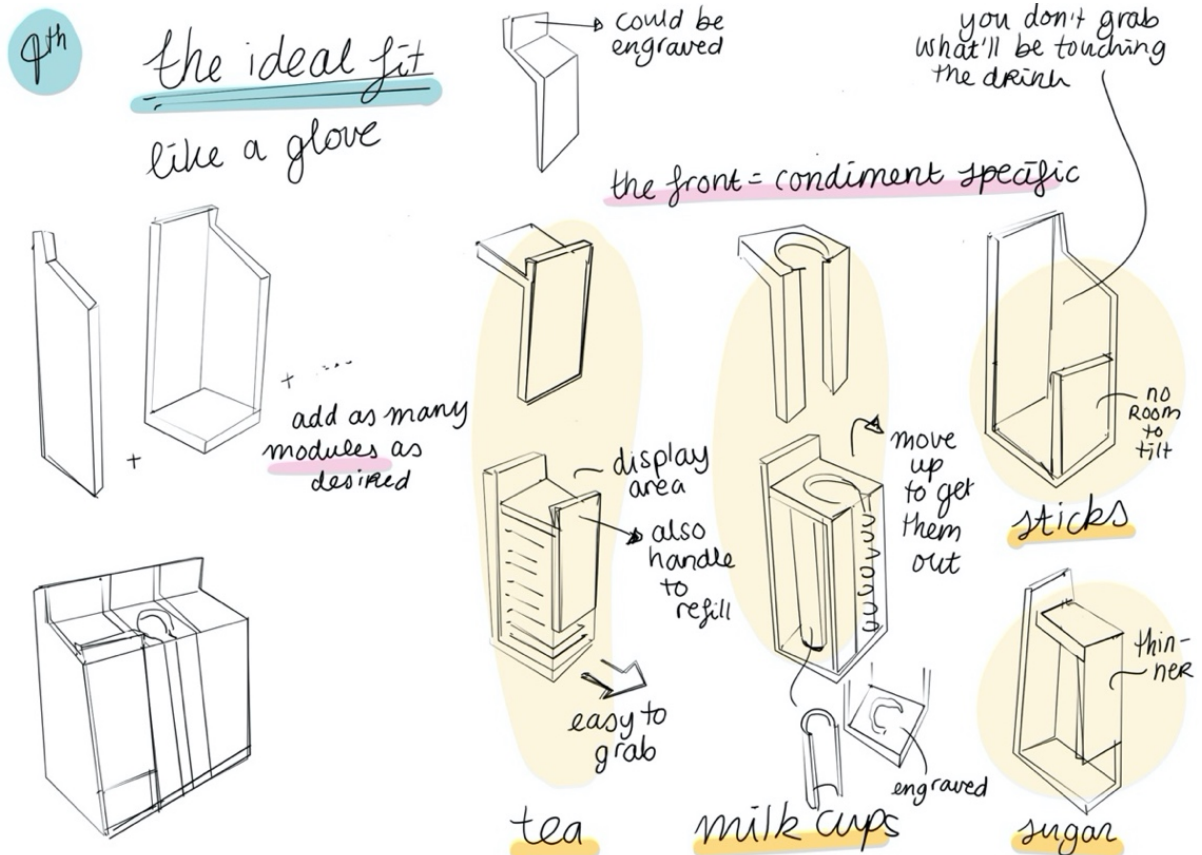 9th
the ideal fit
like a glove
could be
engraved
you don't grab
what'll be touching
the drink
the front = condiment specific
+
+ .....
add as many
modules as
desired
display
area
also
handle
to
refill
easy to
grab
tea
move
up
to get
them
out
engraved
milk cups
no
room
to
tilt
sticks
thin-
ner
sugar